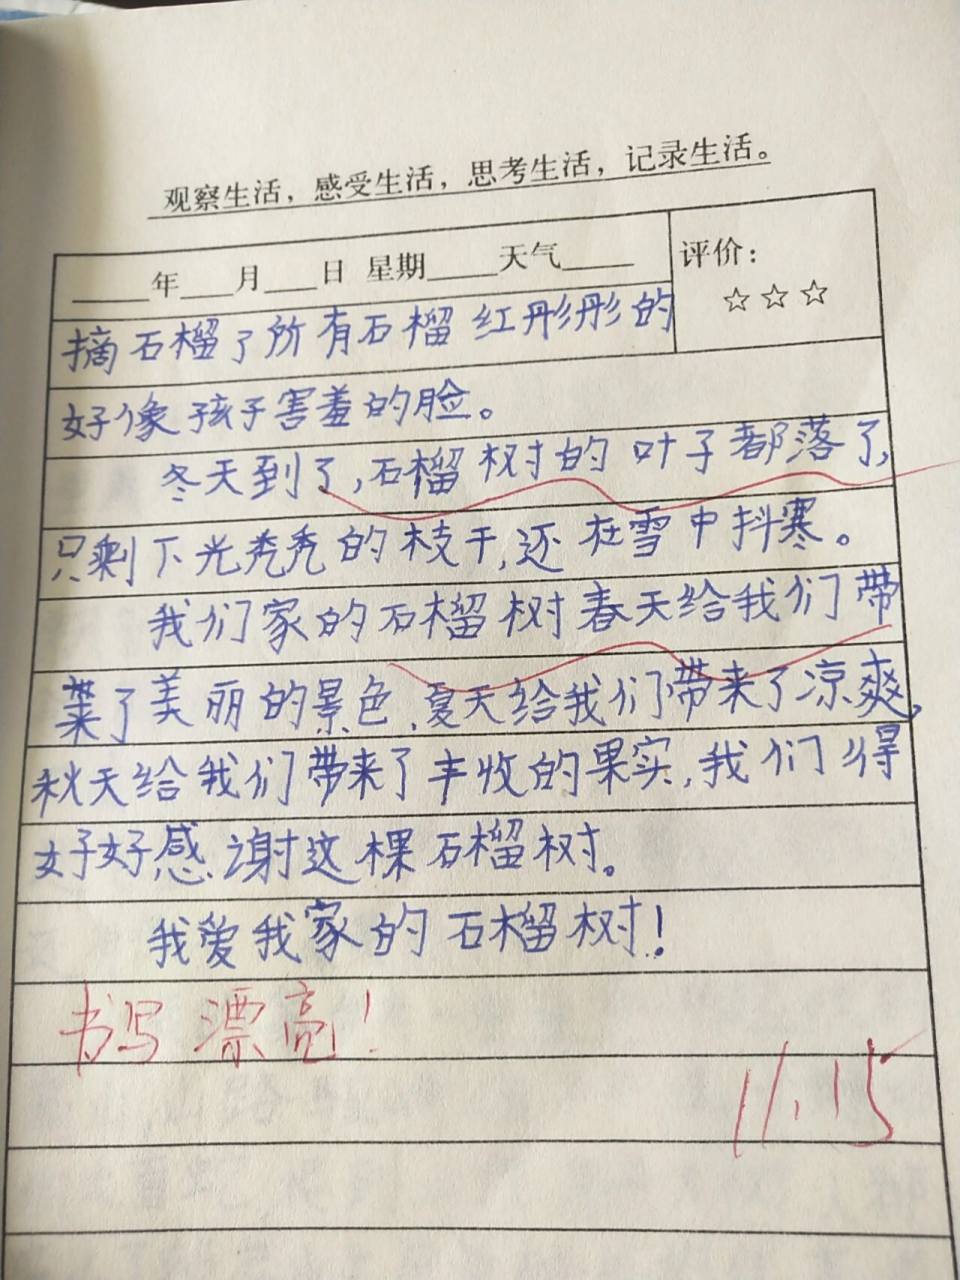 观察生活，感受生活，思考生活，记录生活。
____年___月___日 星期____天气____
评价：
☆☆☆
摘石榴了所有石榴红彤彤的
好像孩子害羞的脸。
冬天到了，石榴树的叶子都落了，
只剩下光秃秃的枝干，还在雪中抖寒。
我们家的石榴树春天给我们带
来了美丽的景色，夏天给我们带来了凉爽，
秋天给我们带来了丰收的果实，我们得
好好感谢这棵石榴树。
我爱我家的石榴树！
书写漂亮！
11.15